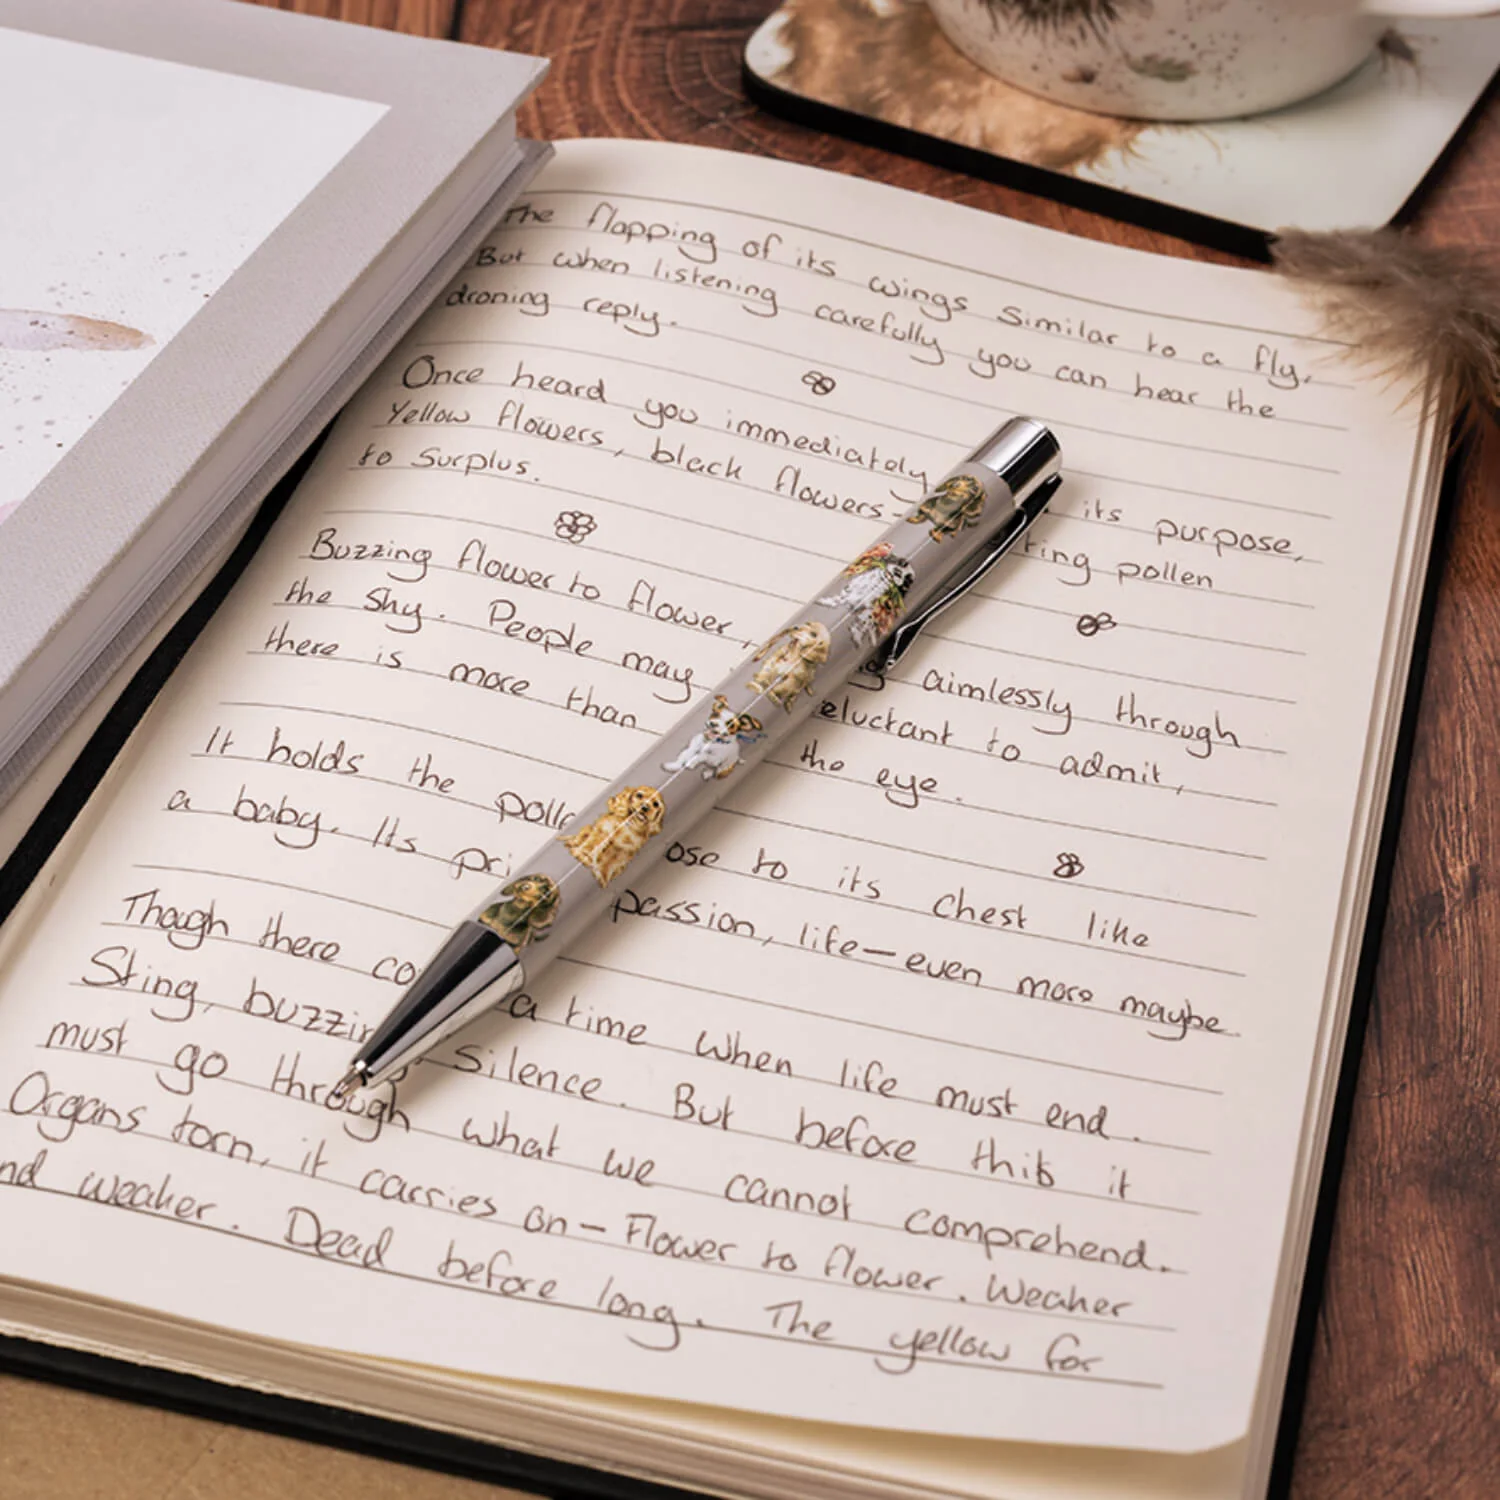 The flapping of its wings similar to a fly.
But when listening carefully you can hear the
droning reply.
Once heard you immediately its purpose,
Yellow flowers, black flowers- ting pollen
to surplus.
Buzzing flower to flower, aimlessly through
the sky. People may reluctant to admit,
there is more than the eye.
It holds the polle ose to its chest like
a baby. Its pri passion, life-even more maybe.
Though there co a time when life must end.
Sting, buzzin silence. But before this it
must go through what we cannot comprehend.
Organs torn, it carries on- Flower to flower. Weaker
nd weaker. Dead before long. The yellow for